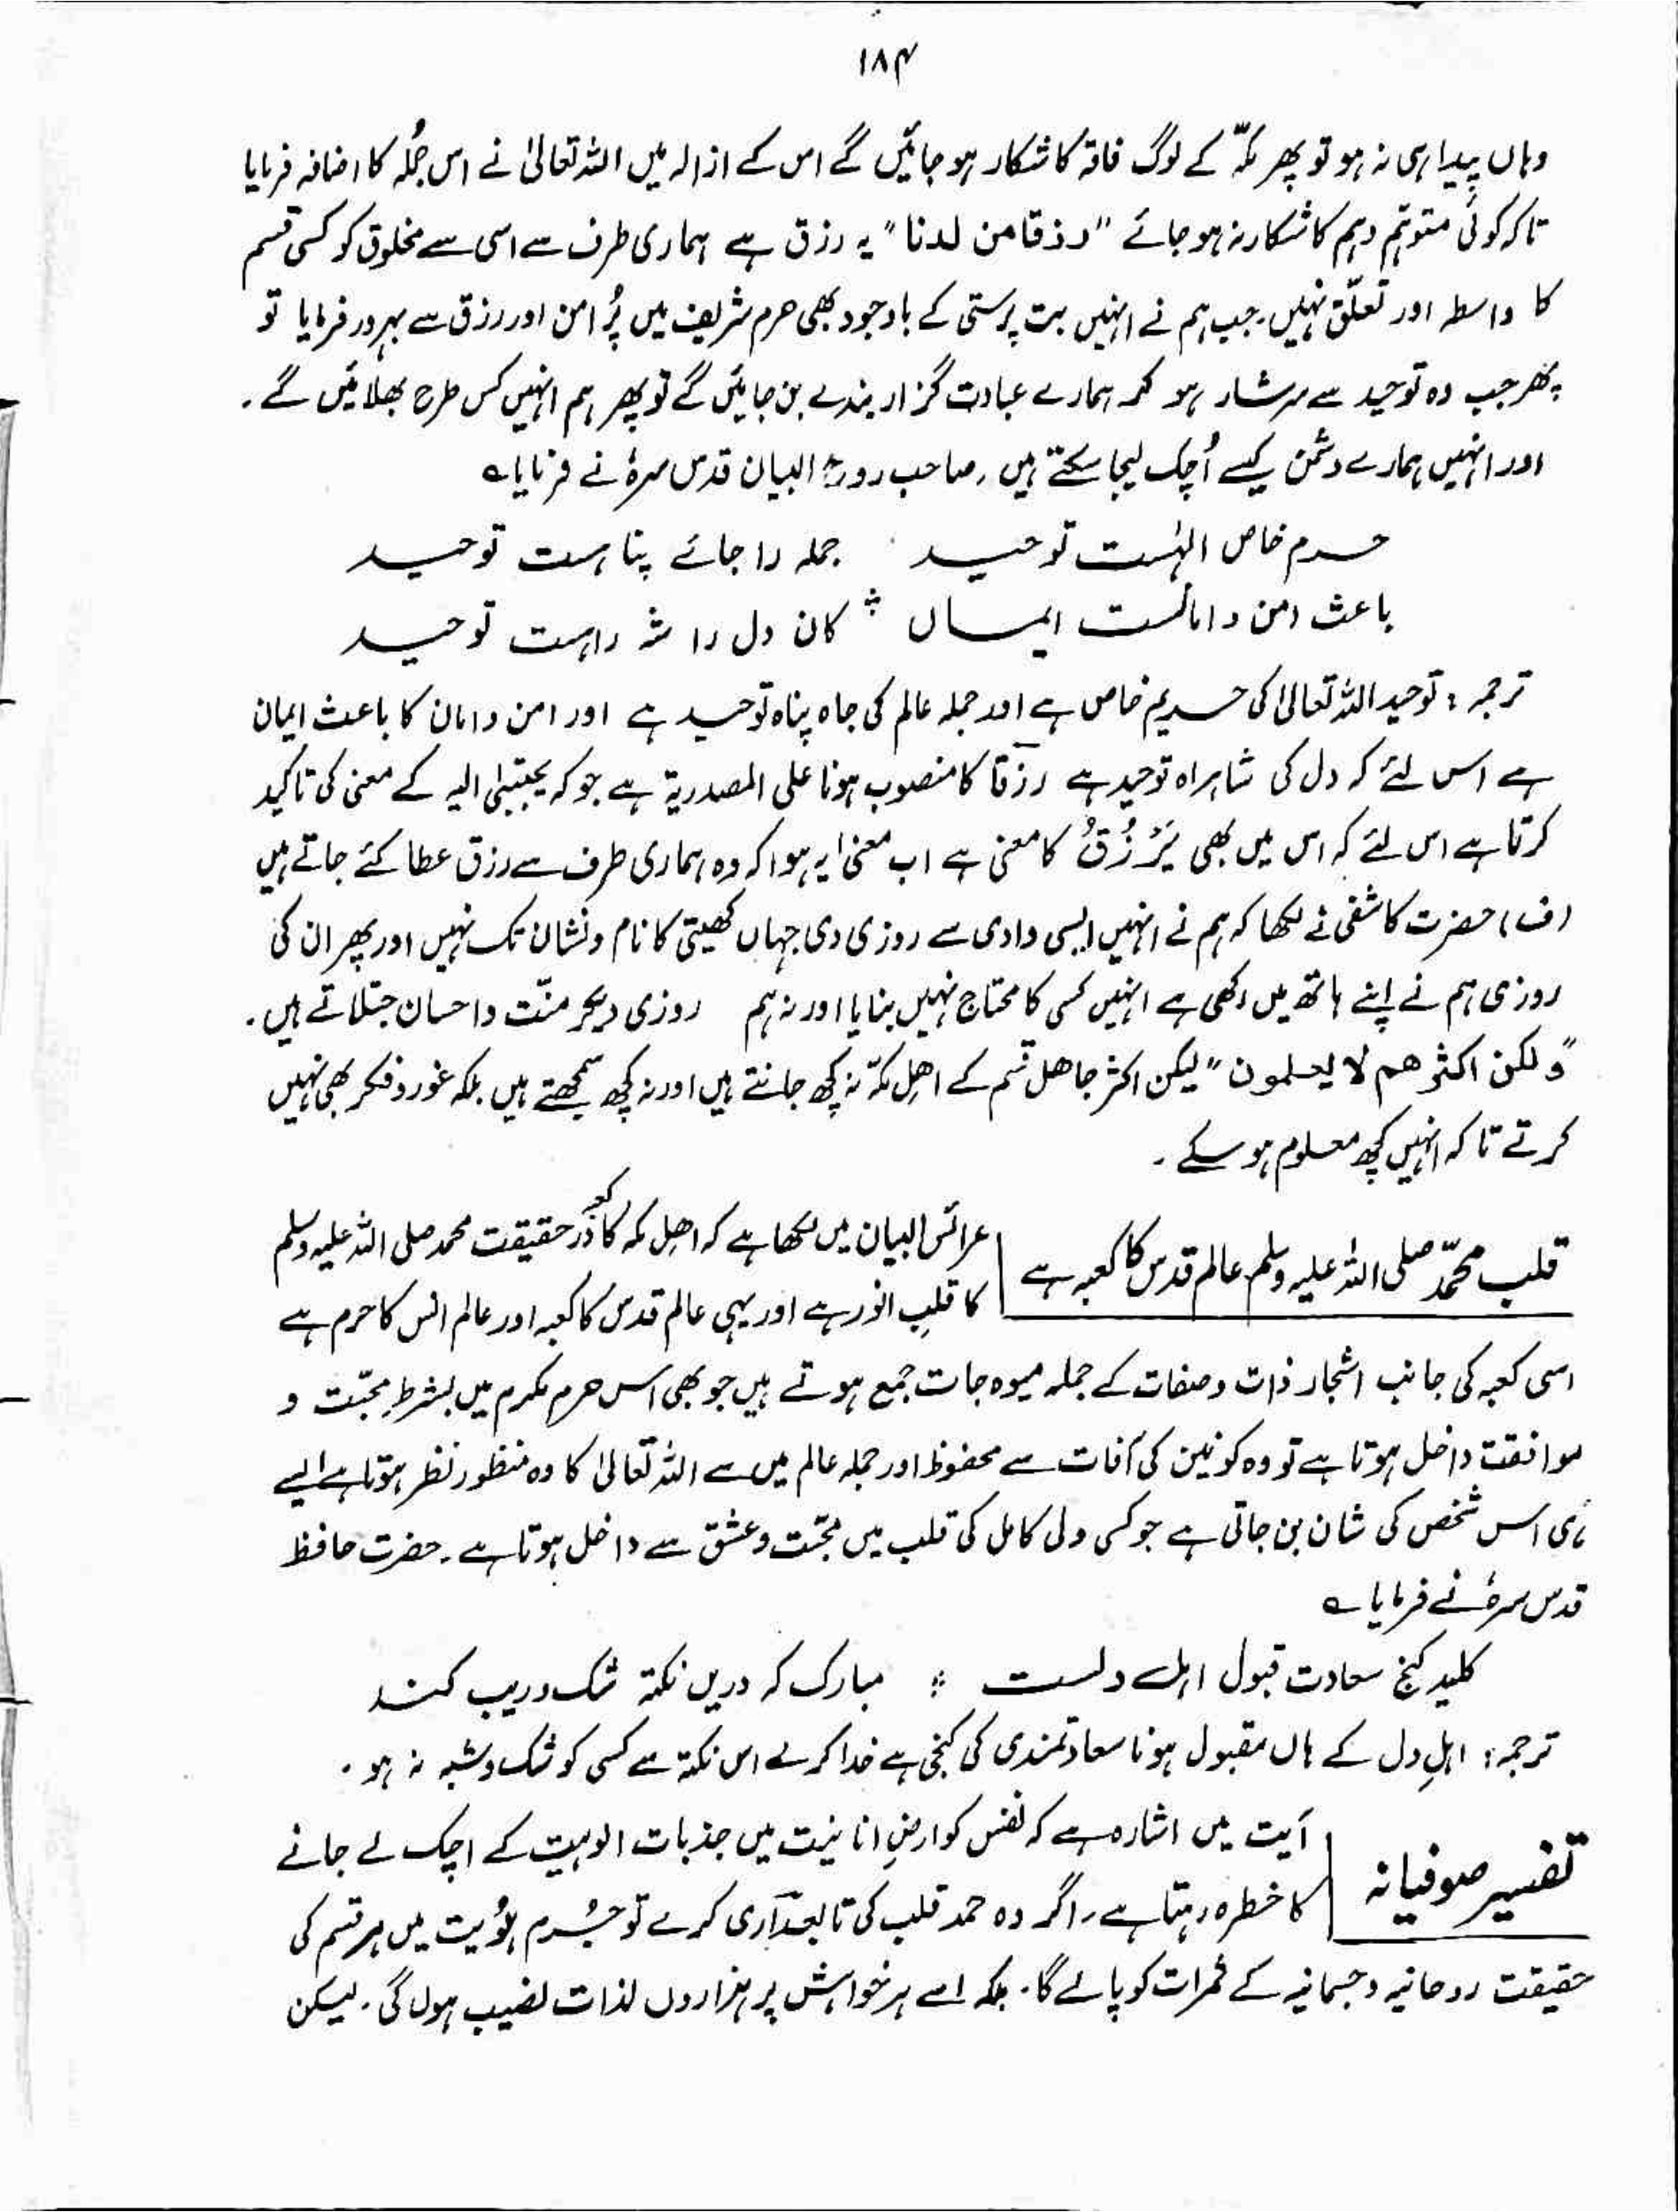 ۱۸۴
وہاں پیدا ہی نہ ہو تو پھر مکہّ کے لوگ فاقہ کا شکار ہو جائیں گے اس کے ازالہ میں اللہ تعالیٰ نے اس جُملہ کا اضافہ فرمایا
تاکہ کوئی متوہّم وہم کا شکار نہ ہو جائے "رزقا من لدنا" یہ رزق ہے ہماری طرف سے اسی سے مخلوق کو کسی قسم
کا واسطہ اور تعلّق نہیں۔ جب ہم نے انہیں بت پرستی کے باوجود بھی حرم شریف میں پُر امن اور رزق سے بہرہ ور فرمایا تو
پھر جب وہ توحید سے سرشار ہو کر ہمارے عبادت گزار بندے بن جائیں گے تو پھر ہم انہیں کس طرح بھلائیں گے۔
اور انہیں ہمارے دشمن کیسے اُچک لیجا سکتے ہیں۔ صاحب روح البیان قدس سرہٗ نے فرمایا؎
حرم خاص الٰہست توحید جملہ را جائے پناہست توحید
باعث امن و امانست ایماں ؞ کان دل را شہ راہست توحید
ترجمہ: توحید اللہ تعالیٰ کی حریم خاص ہے اور جملہ عالم کی جاہ پناہ توحید ہے اور امن و امان کا باعث ایمان
ہے اس لئے کہ دل کی شاہراہ توحید ہے رزقا کا منصوب ہونا علی المصدریۃ ہے جو کہ یجبیٰ الیہ کے معنی کی تاکید
کرتا ہے اس لئے کہ اس میں بھی یَرْزُقُ کا معنی ہے اب معنیٰ یہ ہوا کہ وہ ہماری طرف سے رزق عطا کئے جاتے ہیں
(ف) حضرت کاشفی نے لکھا کہ ہم نے انہیں ایسی وادی سے روزی دی جہاں کھیتی کا نام و نشان تک نہیں اور پھر ان کی
روزی ہم نے اپنے ہاتھ میں رکھی ہے انہیں کسی کا محتاج نہیں بنایا اور نہ ہم روزی دیکر منّت و احسان جتلاتے ہیں۔
"ولکن اکثرھم لا یعلمون" لیکن اکثر جاھل قسم کے اھل مکہّ نہ کچھ جانتے ہیں اور نہ کچھ سمجھتے ہیں بلکہ غور و فکر بھی نہیں
کرتے تاکہ انہیں کچھ معلوم ہو سکے۔
قلب محمّد صلی اللہ علیہ وسلم عالم قدس کا کعبہ ہے
عرائس البیان میں لکھا ہے کہ اھل مکہ کا کعبہ درحقیقت محمد صلی اللہ علیہ وسلم
کا قلبِ انور ہے اور یہی عالم قدس کا کعبہ اور عالم انس کا حرم ہے
اسی کعبہ کی جانب اشجار ذات و صفات کے جملہ میوہ جات جمع ہوتے ہیں جو بھی اس حرم مکرم میں بشرطِ محبّت و
موافقت داخل ہوتا ہے تو وہ کونین کی آفات سے محفوظ اور جملہ عالم میں سے اللہ تعالیٰ کا وہ منظور نظر ہوتا ہے ایسے
ہی اس شخص کی شان بن جاتی ہے جو کسی ولی کامل کی قلب میں محبّت و عشق سے داخل ہوتا ہے۔ حضرت حافظ
قدس سرہٗ نے فرمایا؎
کلید گنج سعادت قبول اہل دلست ؞ مبارک کہ دریں نکتہ شک و ریب کند
ترجمہ: اہلِ دل کے ہاں مقبول ہونا سعادتمندی کی کنجی ہے خدا کرے اس نکتہ سے کسی کو شک و شبہ نہ ہو۔
تفسیر صوفیانہ
آیت میں اشارہ ہے کہ نفس کو ارضِ انانیت میں جذبات الوہیت کے اچک لے جانے
کا خطرہ رہتا ہے۔ اگر وہ حمد قلب کی تابعداری کرے تو حرم ہوُیت میں ہر قسم کی
حقیقت روحانیہ و جسمانیہ کے ثمرات کو پالے گا۔ بلکہ اسے ہر خواہش پر ہزاروں لذات نصیب ہوں گی۔ لیکن